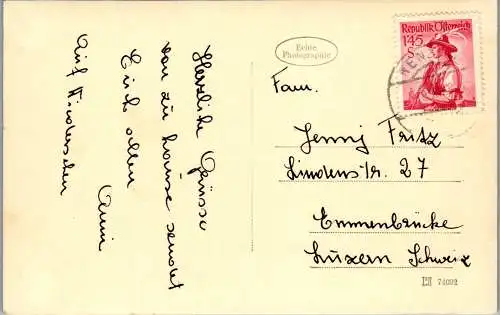 Herzliche Grüsse
von zu hause sendet
Euch allen
Anni
Auf Wiedersehen
Echte
Photographie
Republik Österreich
1.45
S
Fam.
Jenny Fritz
Lindenstr. 27
Emmenbrücke
Luzern Schweiz
74092